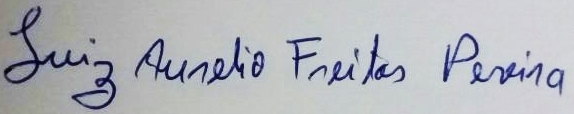 Luiz Aurelio Freitas Pereira